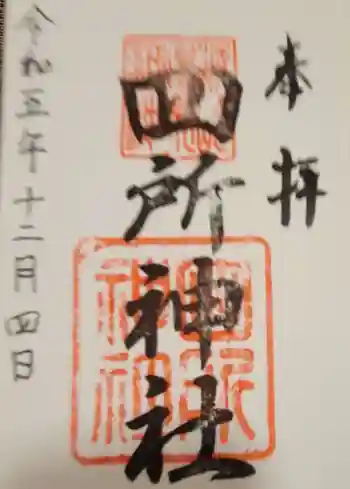 奉拝
四所神社
令和五年十二月四日